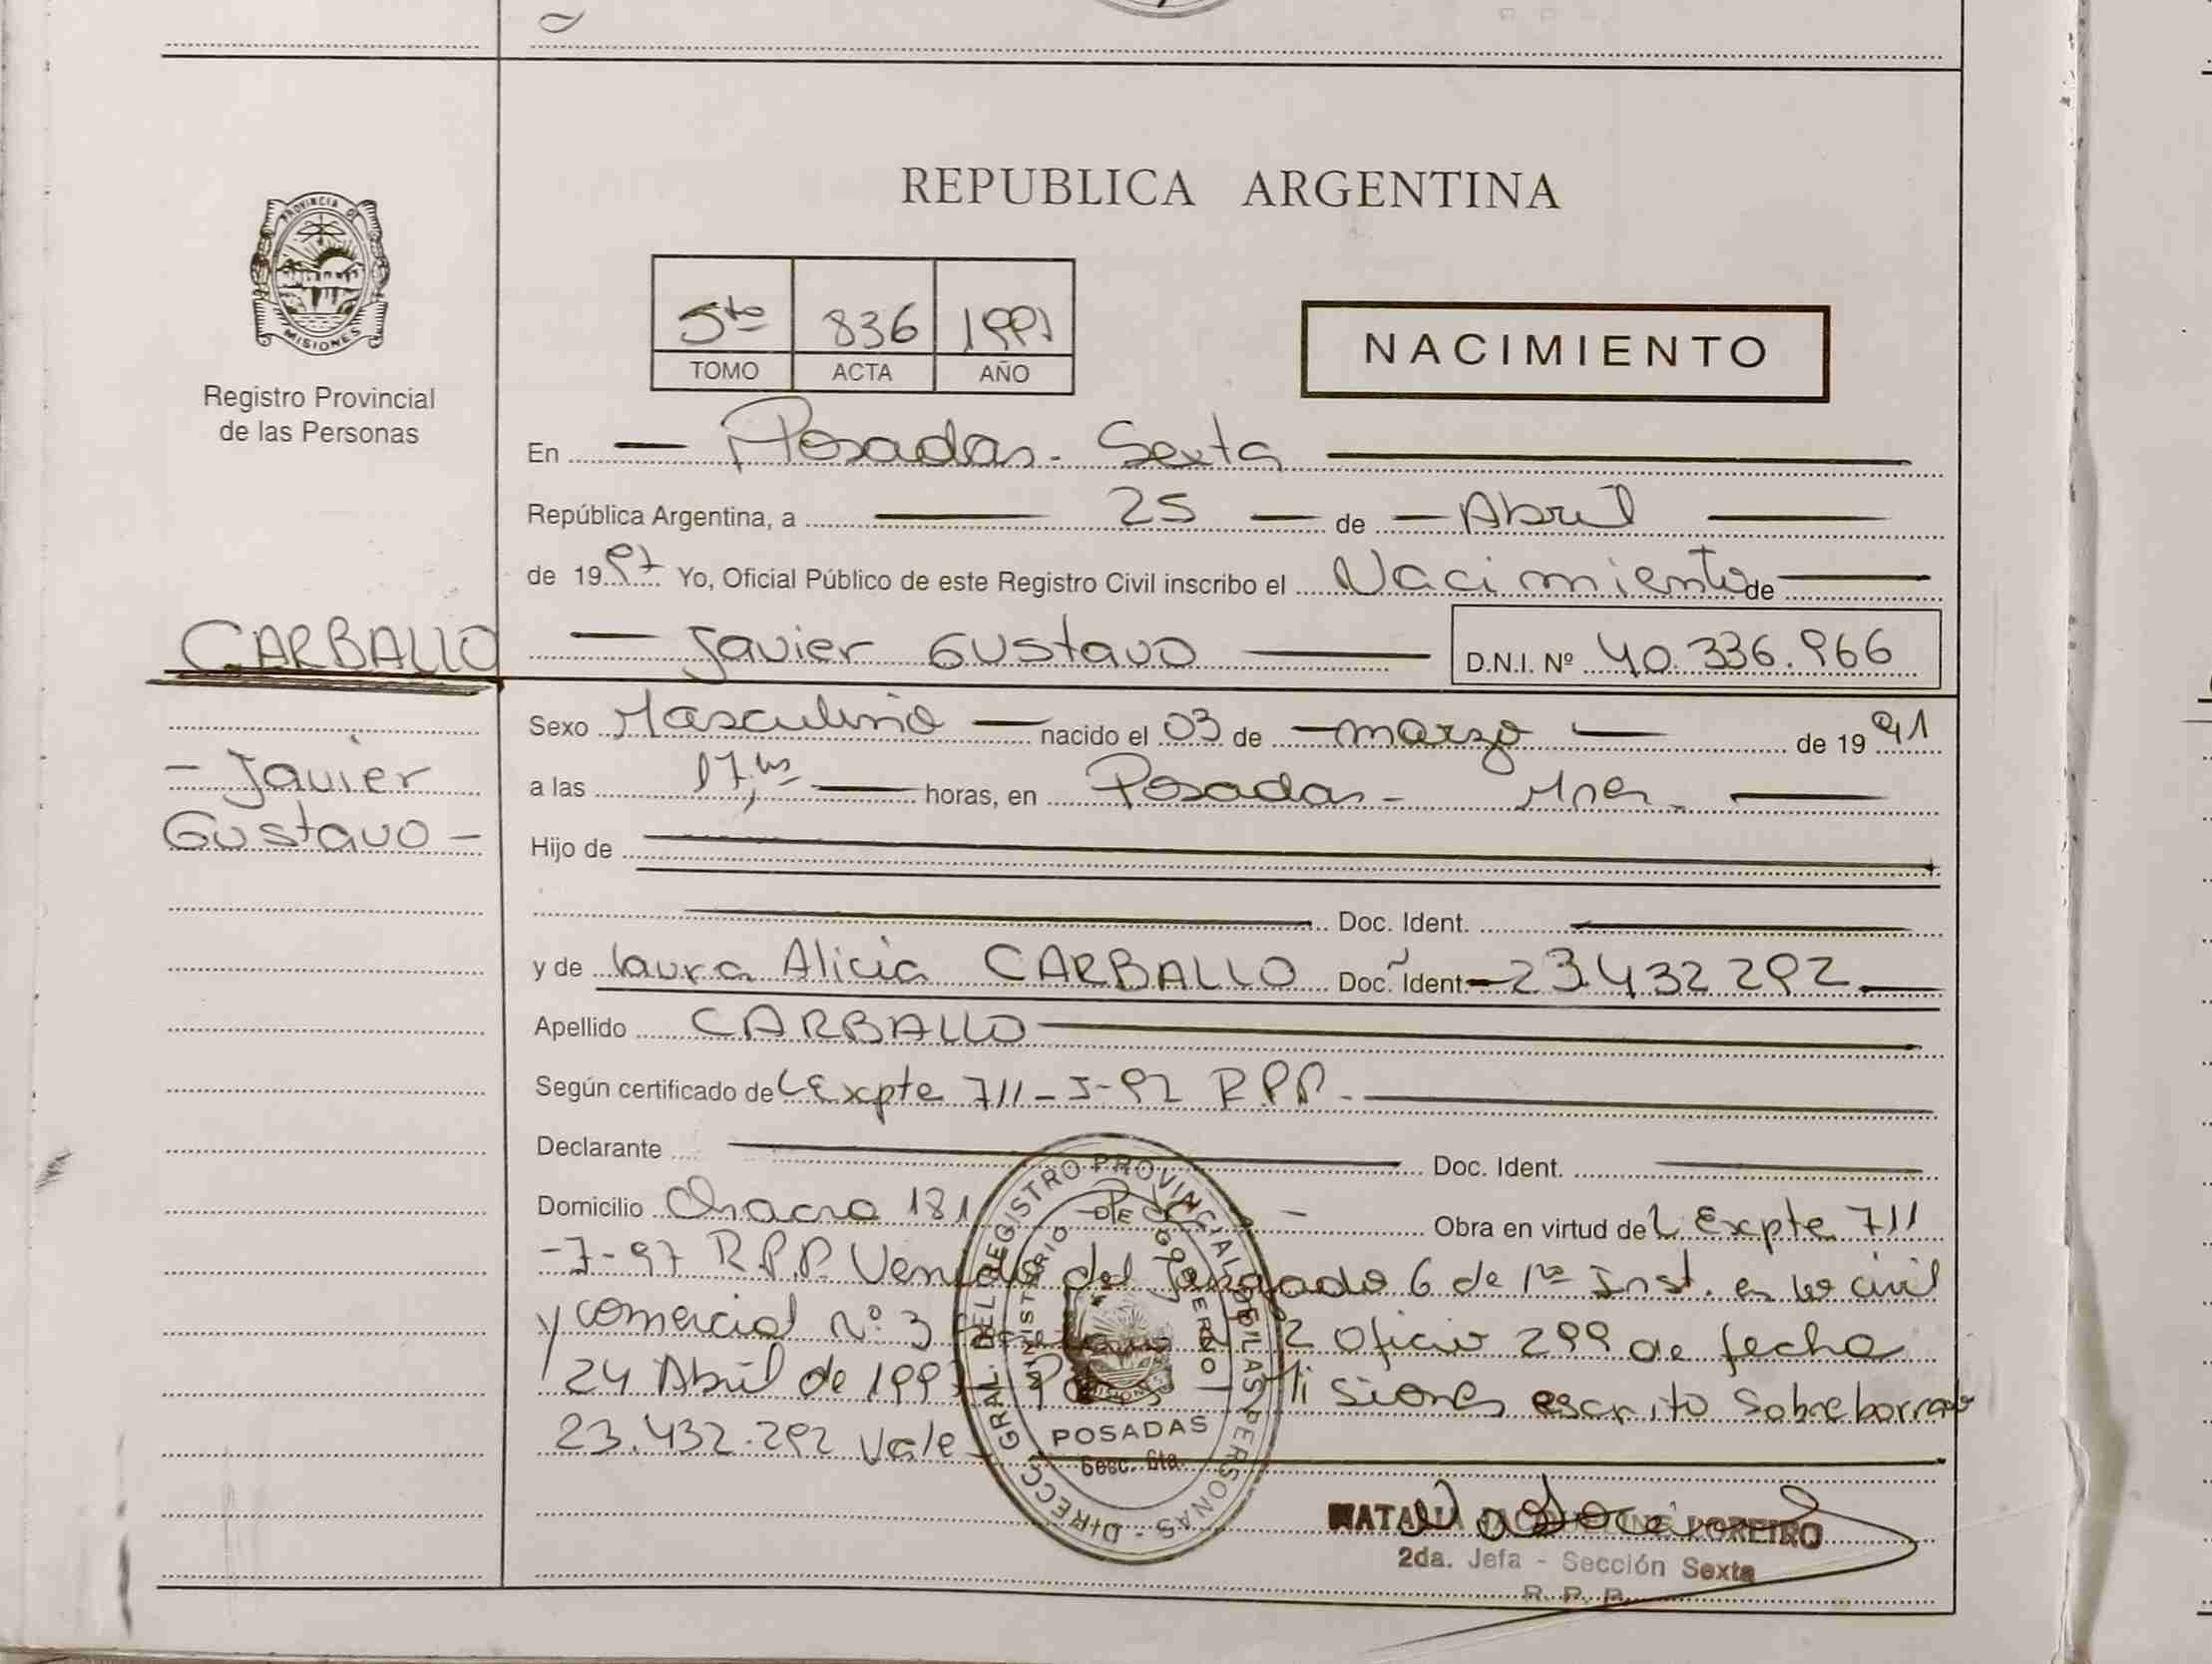 REPUBLICA ARGENTINA
PROVINCIA DE
MISIONES
Registro Provincial
de las Personas
5to 836 1997
TOMO ACTA AÑO
NACIMIENTO
En Posadas - Sexta
República Argentina, a 25 de Abril
de 1997 Yo, Oficial Público de este Registro Civil inscribo el Nacimiento de
CARBALLO
Javier Gustavo D.N.I. Nº 40.336.966
- Javier
Gustavo -
Sexo Masculino nacido el 03 de marzo de 1991
a las 17,hs horas, en Posadas - Mnes.
Hijo de
Doc. Ident.
y de Laura Alicia CARBALLO Doc. Ident. 23.432 292
Apellido CARBALLO
Según certificado del Expte 711-J-97 R.P.P.
Declarante Doc. Ident.
Domicilio Chacra 181 Pdas - Obra en virtud del Expte 711
-J-97 R.P.P. Venido del Juzgado 6 de 1ra Inst. en lo civil
y comercial Nº 3 2 oficio 299 de fecha
24 Abril de 1997 Misiones escrito sobreborrado
23.432.292 Vale
DIRECC. GRAL. DEL REGISTRO PROVINCIAL DE LAS PERSONAS
MINISTERIO DE GOBIERNO
MISIONES
POSADAS
Secc. 6ta.
NATALIA LOREIRO
2da. Jefa - Sección Sexta
R. P. P.